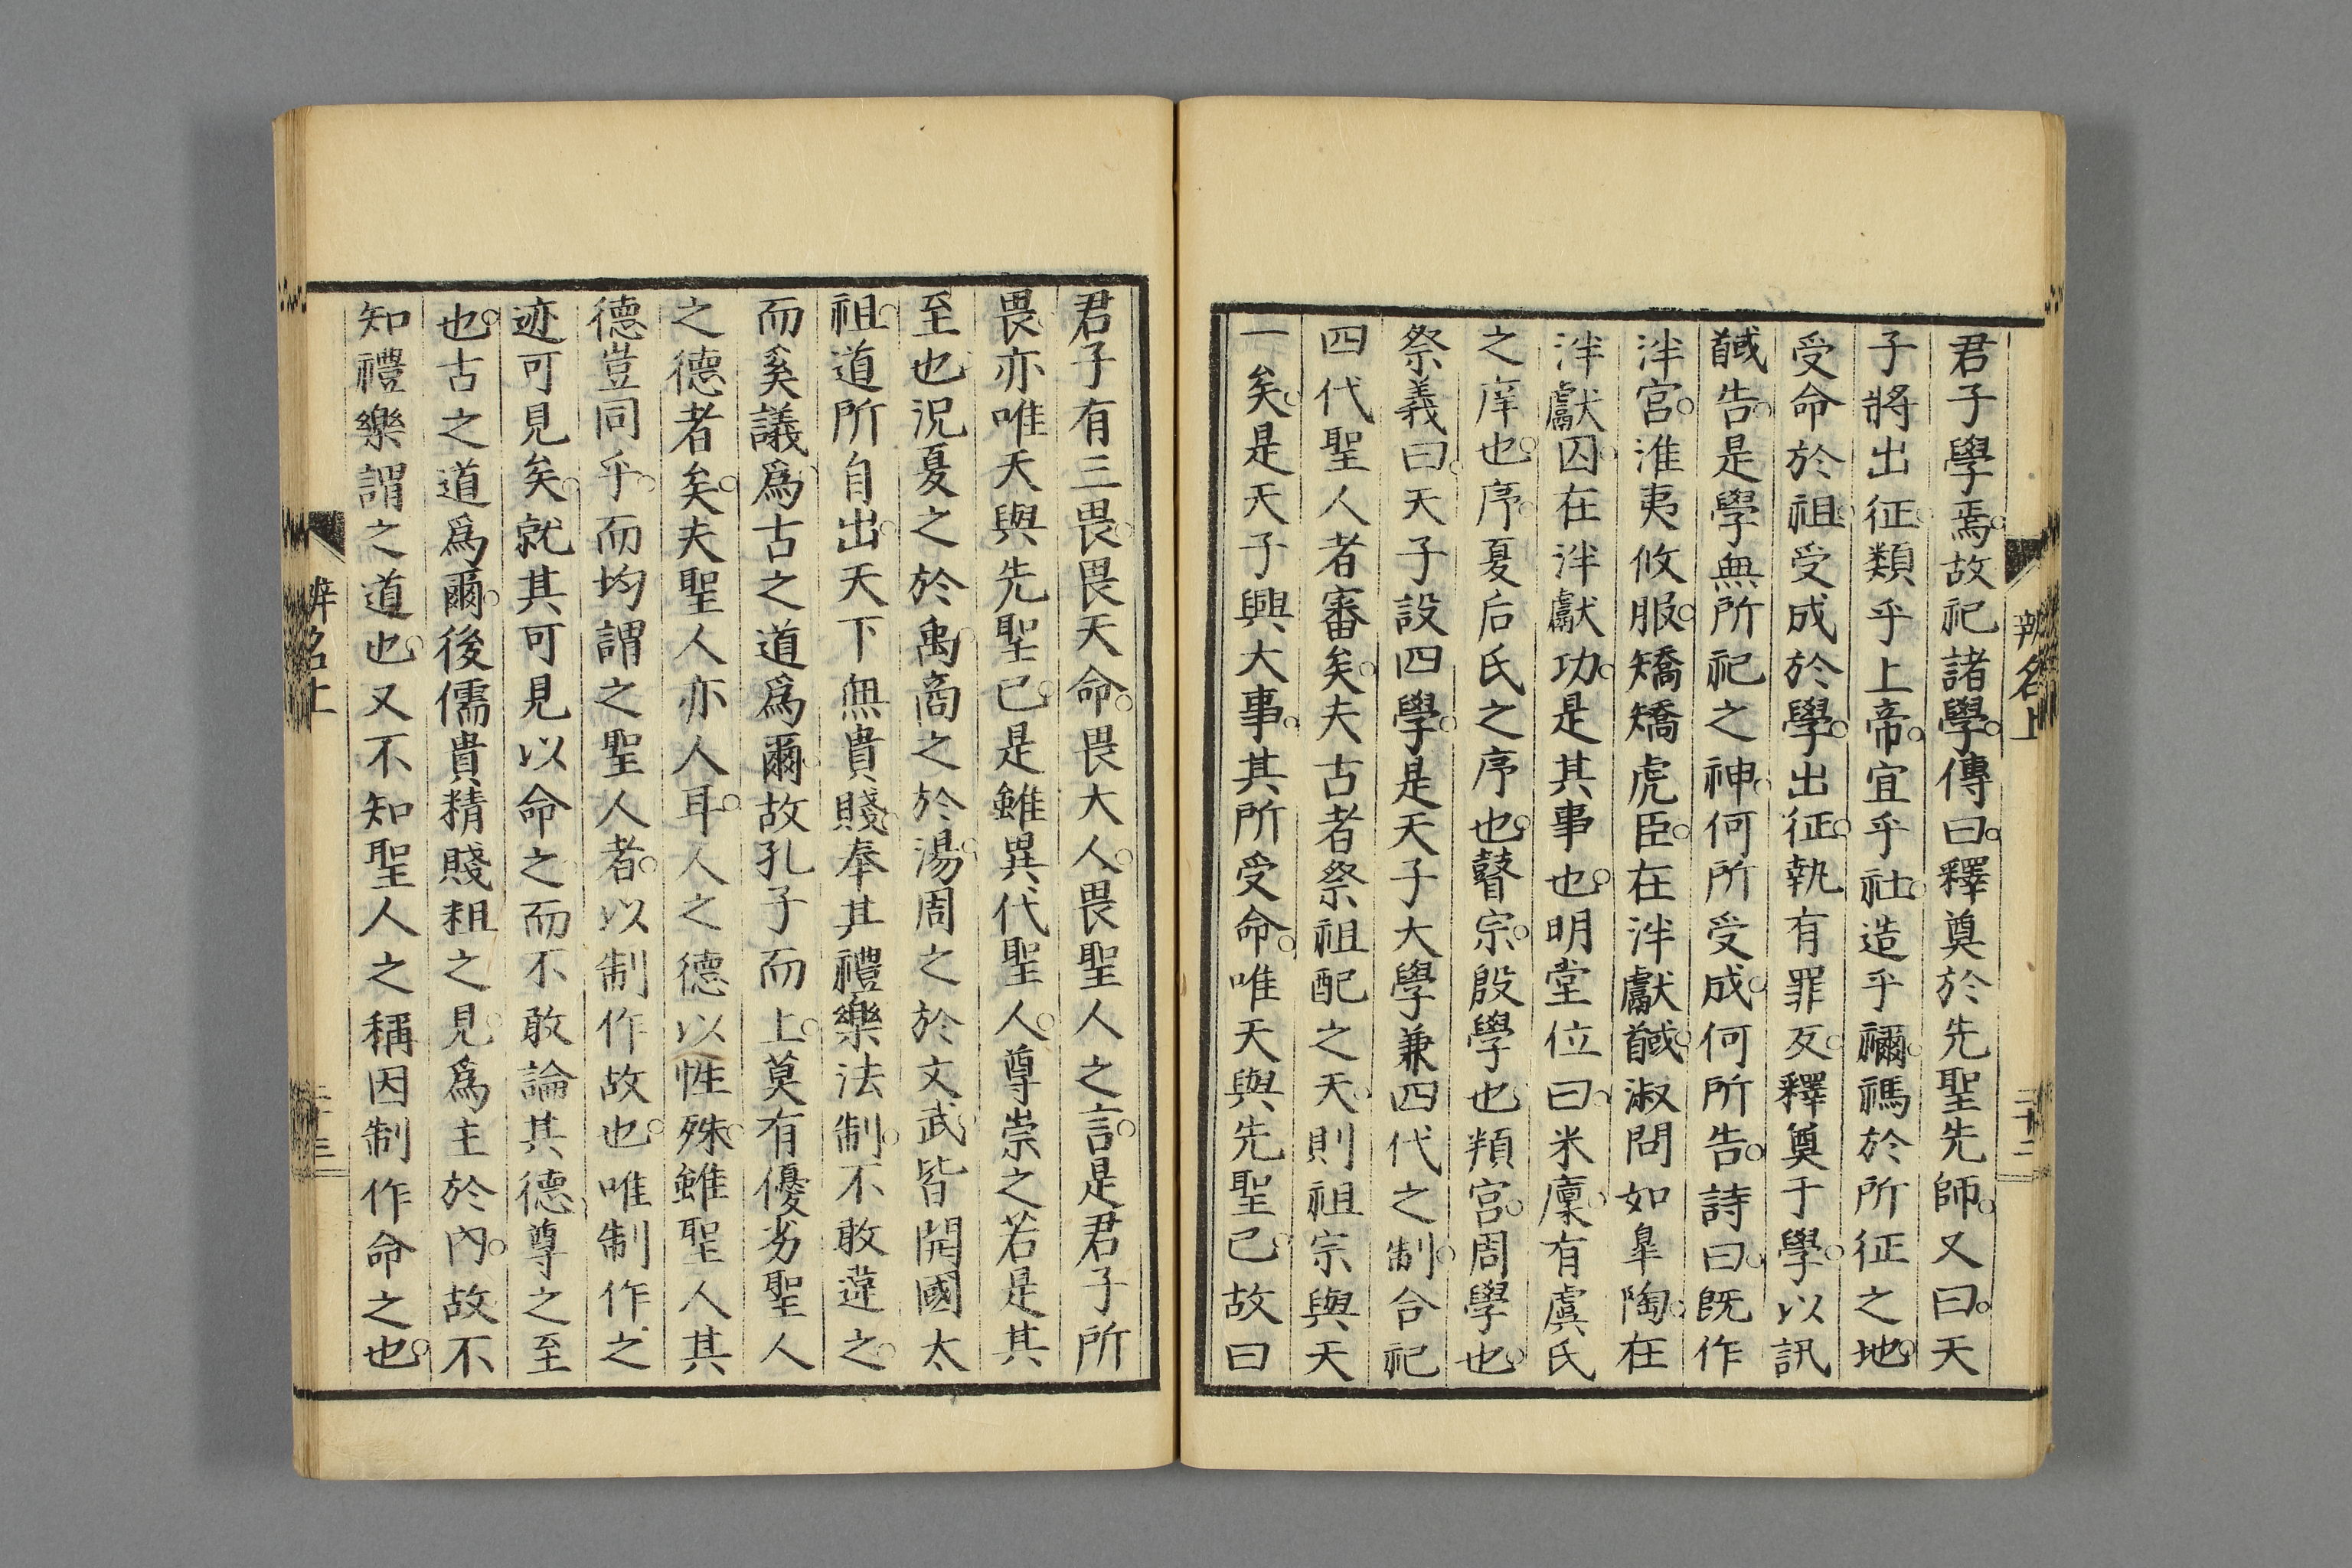 君子學焉故祀諸學傳曰釋奠於先聖先師又曰天
子將出征類乎上帝宜乎社造乎禰禡於所征之地
受命於祖受成於學出征執有罪反釋奠于學以訊
馘告是學無所祀之神何所受成何所告詩曰既作
泮宮淮夷攸服矯矯虎臣在泮獻馘淑問如皐陶在
泮獻囚在泮獻功是其事也明堂位曰米廩有虞氏
之庠也序夏后氏之序也瞽宗殷學也頖宮周學也
祭義曰天子設四學是天子大學兼四代之制合祀
四代聖人者審矣夫古者祭祖配之天則祖宗與天
一矣是天子興大事其所受命唯天與先聖已故曰
辨名上
二十三
君子有三畏畏天命畏大人畏聖人之言是君子所
畏亦唯天與先聖已是雖異代聖人尊崇之若是其
至也況夏之於禹商之於湯周之於文武皆開國太
祖道所自出天下無貴賤奉其禮樂法制不敢違之
而奚議爲古之道爲爾故孔子而上莫有優劣聖人
之德者矣夫聖人亦人耳人之德以性殊雖聖人其
德豈同乎而均謂之聖人者以制作故也唯制作之
迹可見矣就其可見以命之而不敢論其德尊之至
也古之道爲爾後儒貴精賤粗之見爲主於內故不
知禮樂謂之道也又不知聖人之稱因制作命之也
辨名上